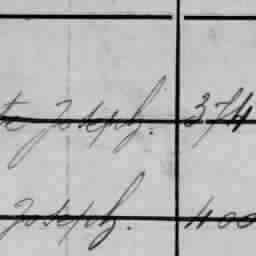 te Joseph. 374
Joseph. 400